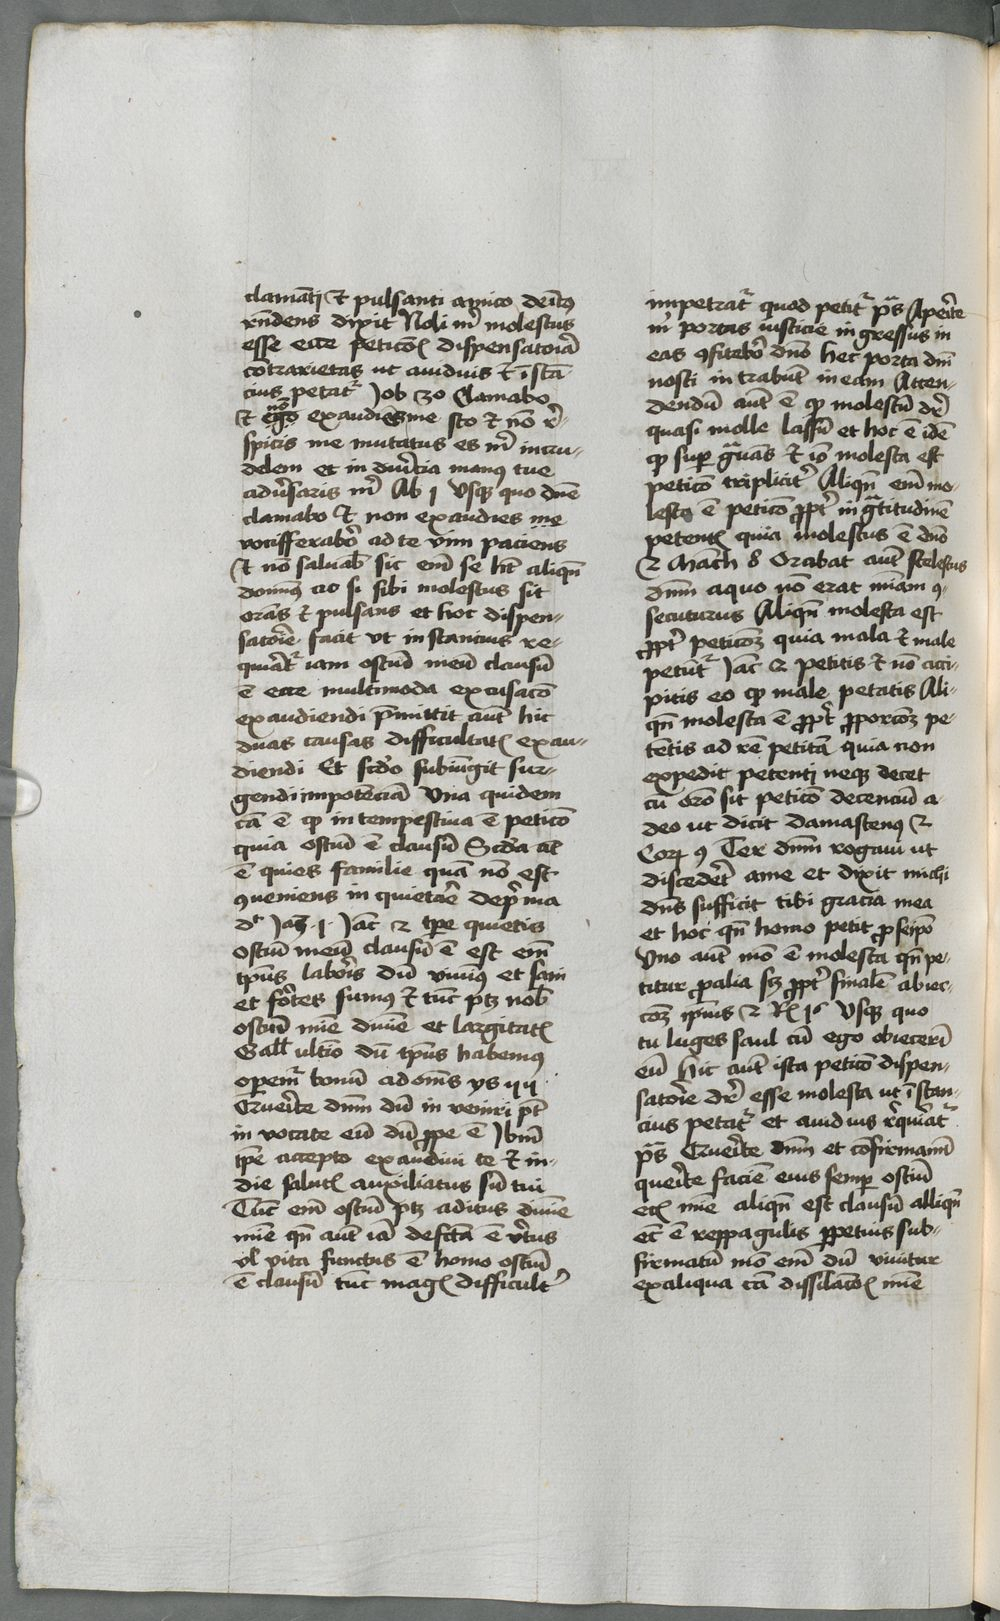 clamāti et pulsanti amico deītus
rn̄dens dixit Noli m̄ molestus
esse ecce peticōis dispensatoīā
cōtrarietas ut auidius et ī stā
cius petatr Job 30 Clamabo
et ego nō exaudies me sto et nō re
spicis me mutatus es m̄ in cru-
delem et in duricia manus tue
aduersaris m̄ Ab 1 Vsqz quo dn̄e
clamabo et non exaudies me
vocifferabor ad te vim paciens
et nō saluab sic em̄ se ht aliqn̄
domnus ac si sibi molestus sit
orās et pulsans et hoc dispen-
satoīe facit ut in stancius re-
quirat iam ostiū meū clausū
ē ecce multimoda excusacō
exaudiendi p̄mittit aut hic
duas causas difficultatis exau-
diendi Et scd̄o subiūgit sur-
gendi impotēciā Vna quidem
cā ē qp in tempestiua ē peticō
quia ostiū ē clausū Scd̄a at
ē quies familie quā nō est
9ueniens in quietare de p̄ma
dr Jac 1 Jac 2 tpe quietis
ostiū meū clausū ē est em̄
tp̄us laboris dū viuiūs et sani
et fortes sumus et tūc ptz nob
ostiū mīe diuīe et largitatis
Gall ultīo dū tp̄us habemus
operem̄r bonū ad om̄s ys 44
Querite dnm̄ dū in veniri pt
in vocate eū dū ꝓpe ē Ibm̄
tp̄e accepto exaudiui te et in-
die salutis auxiliatus sū tui
Tūc em̄ ostiū ptz aditus diuīe
mīe qn̄ aut iā defc̄ta ē virtus
ul vita functus ē homo ostiū
ē clausū tūc magis difficulter
impetratr quod petitr ps̄ Aperite
m̄ portas iusticie in gressus in
eas 9fitebor dn̄o hec porta dn̄i
iusti in trabūt in eam Atten-
dendū aut ē qp molestū dr
quasi molle lassū et hoc ē idē
qp super grauās et iō molesta est
peticō tripliciter Aliqn̄ em̄ mo-
lesta ē peticō ꝓpter in gratitudinē
petentis quia molestus ē dn̄o
2 Mach 8 Orabat aut scelestus
dnm̄ a quo nō erat mīam 9
secuturus Aliqn̄ molesta est
ꝓpter peticōz quia mala et male
petūtr Jac 2 petitis et nō acci-
pitis eo qp male petatis Ali-
qn̄ molesta ē ꝓpter ꝓporcōz pe-
tētis ad rē petitā quia non
expedit petenti neqz decet
cū orō sit peticō decenciū a
deo ut dicit damascenus 2
Cor 9 Ter dnm̄ rogaui ut
discederet a me et dixit michi
dn̄s sufficit tibi gracia mea
et hoc qn̄ homo petit ꝓ seipō
Vno aut mō ē molesta qn̄ pe-
titur ꝓ alia sz ꝓpter finalē abiec-
cōz ipius 2 Rē 16 Vsqz quo
tu luges saul cū ego obiecerī
eū Hic aut ista peticō dispen-
satoīe dr esse molesta ut ī stan-
cius petatr et auidius requiratr
ps̄ Querite dnm̄ et cōfirmamī
querite faciē eius semper ostiū
etis mīe aliqn̄ est clausū alliqn̄
et ē reppagulis ꝓpetuis sub-
firmatū mō em̄ dū viuitur
ex aliqua cā dissilacōis mīe